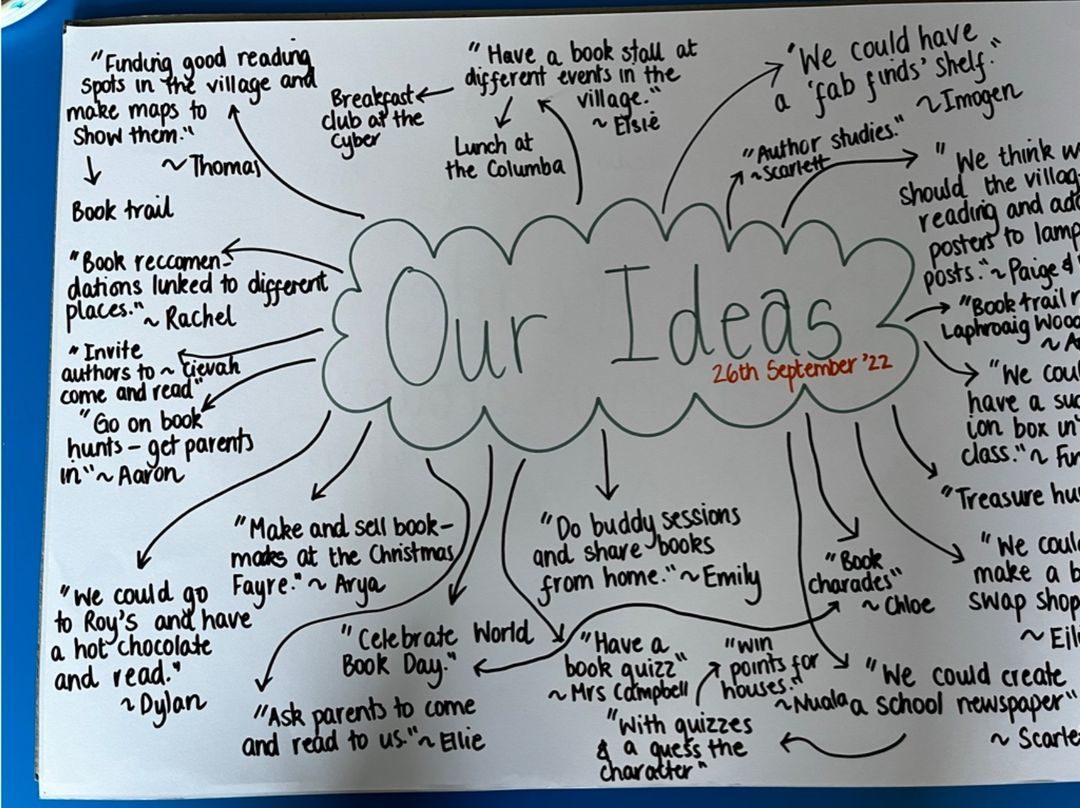 "Finding good reading
spots in the village and
make maps to
show them."
~Thomas
Book trail
"Have a book stall at
different events in the
village."
~ Elsie
Breakfast
club at the
Cyber
Lunch at
the Columba
"We could have
a 'fab finds' shelf."
~Imogen
"Author studies."
~Scarlett
"We think
should the
reading and
posters to
posts."~Paige &
"Book trail
Laphroaig
"Book reccomen-
dations linked to different
places."
~ Rachel
"Invite
authors to ~ Cievah
come and read"
"Go on book
hunts - get parents
in" ~ Aaron
Our Ideas
26th September '22
"We
have a
box
class." ~
"Treasure
"We
make a
swap shop
~
"Make and sell book-
at the Christmas
Fayre." ~ Arya
"Do buddy sessions
and share books
from home." ~Emily
"Book
charades"
~ Chloe
"We could go
to Roy's and have
a hot chocolate
and read."
~Dylan
"Celebrate World
Book Day."
"Have a
book quizz"
~ Mrs Campbell
"win
points for
houses."
~Nuala
"We could create
a school newspaper"
~
"Ask parents to come
and read to us."~ Ellie
"With quizzes
& a guess the
character"